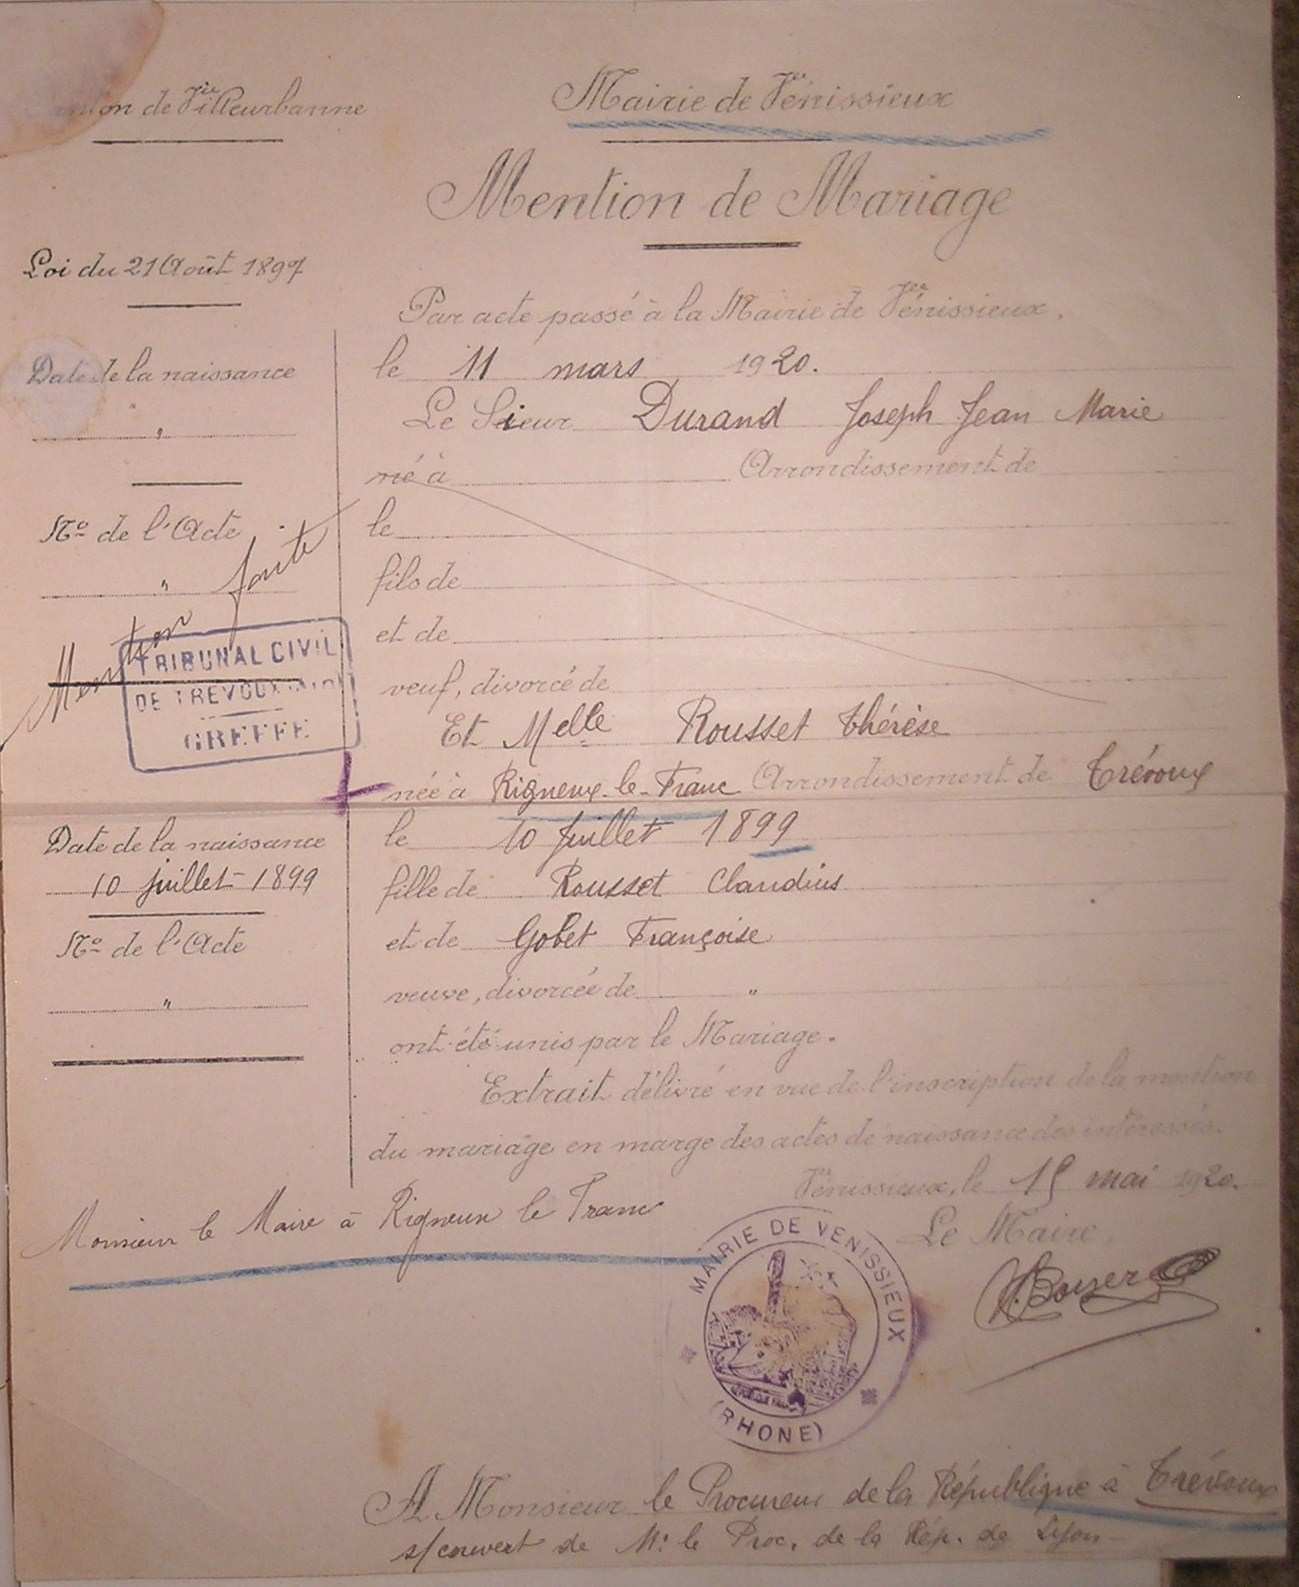 Canton de Villeurbanne
Mairie de Vénissieux
Mention de Mariage
Loi du 21 Août 1897
Par acte passé à la Mairie de Vénissieux.
Date de la naissance
le 11 mars 1920.
"
Le Sieur Durand Joseph Jean Marie
né à Arrondissement de
No de l'Acte
le
"
Mention faite
fils de
et de
TRIBUNAL CIVIL
DE TREVOUX
GREFFE
veuf, divorcé de
Et Melle Rousset Thérèse
née à Rigneux-le-Franc Arrondissement de Trévoux
Date de la naissance
le 10 Juillet 1899
10 juillet 1899
fille de Rousset Claudius
No de l'Acte
et de Gobet Françoise
"
veuve, divorcée de "
ont été unis par le Mariage.
Extrait délivré en vue de l'inscription de la mention
du mariage en marge des actes de naissance des intéressés.
Vénissieux, le 15 mai 1920.
Monsieur le Maire à Rigneux le Franc
Le Maire,
MAIRIE DE VENISSIEUX
(RHONE)
A Monsieur le Procureur de la République à Trévoux
s/couvert de Mr le Proc. de la Rép. de Lyon